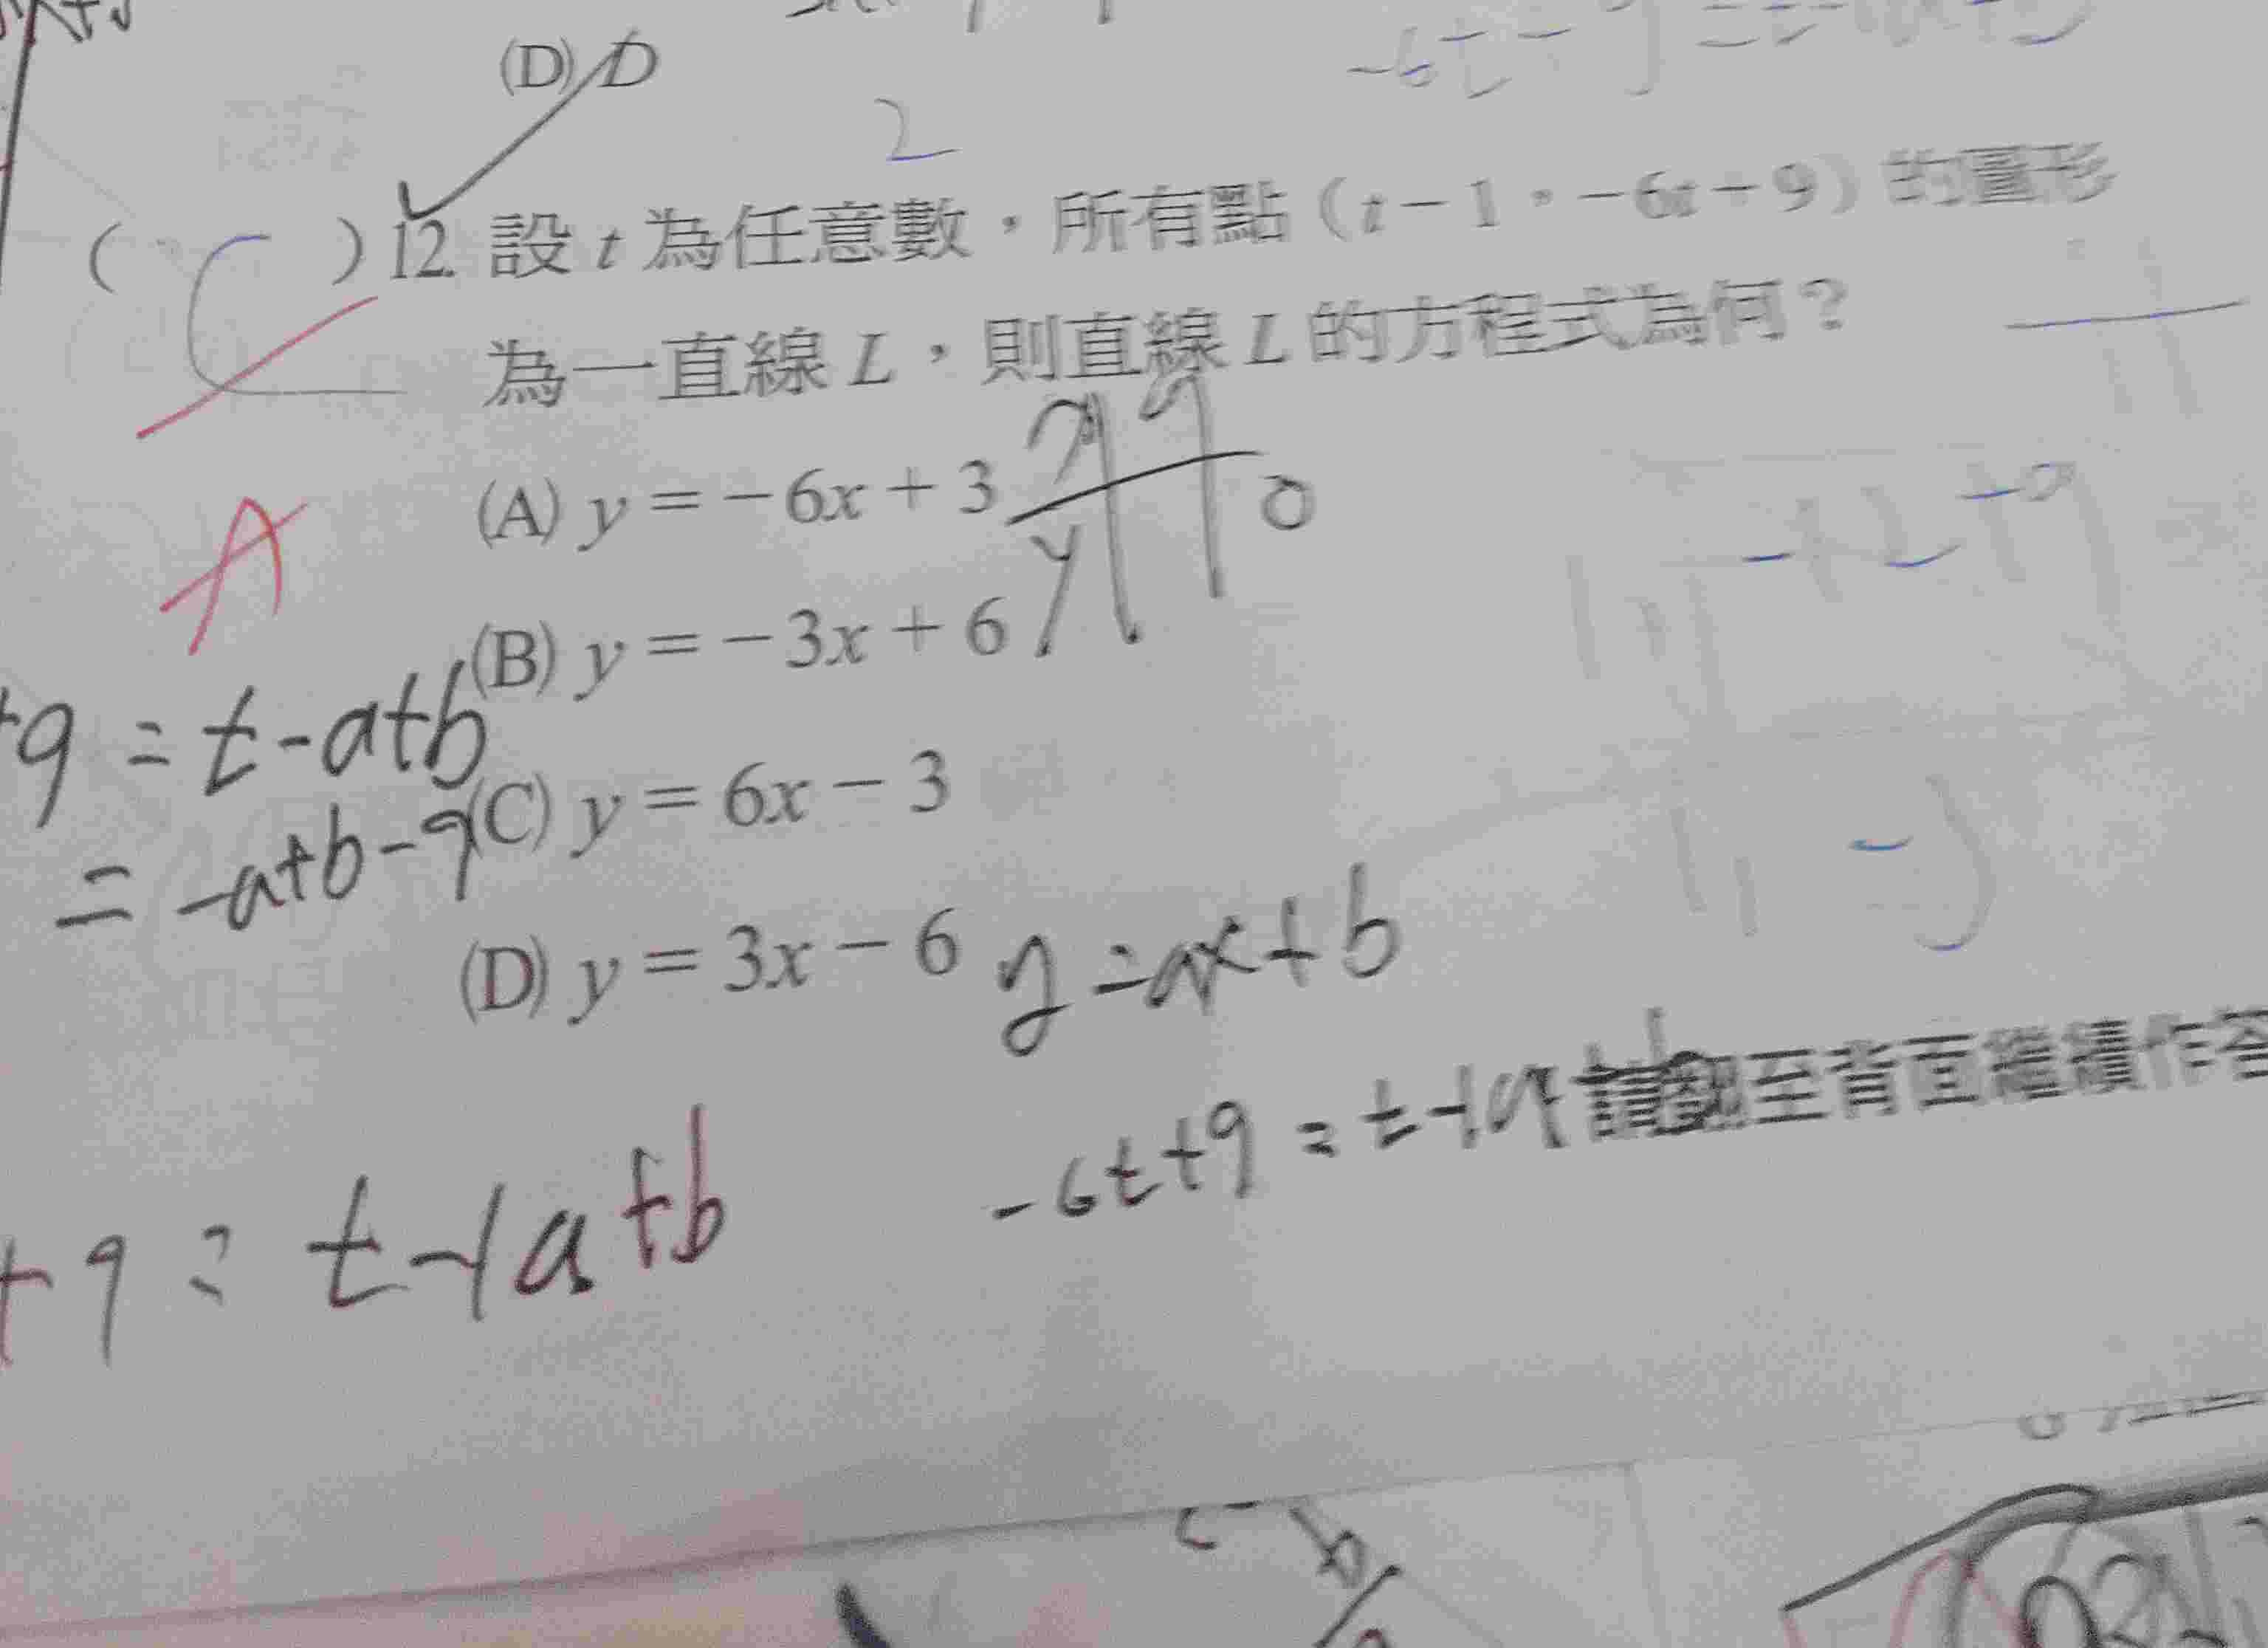 (D) D
2
( C ) 12. 設 t 為任意數，所有點（t－1，－6t＋9）的圖形
為一直線 L，則直線 L 的方程式為何？
A
(A) y＝－6x＋3
(B) y＝－3x＋6
+9 = t-a+b
(C) y＝6x－3
= -a+b-9
(D) y＝3x－6
y=ax+b
-6t+9 = t-1a+b
請翻至背面繼續作答
+9 = t-1a+b